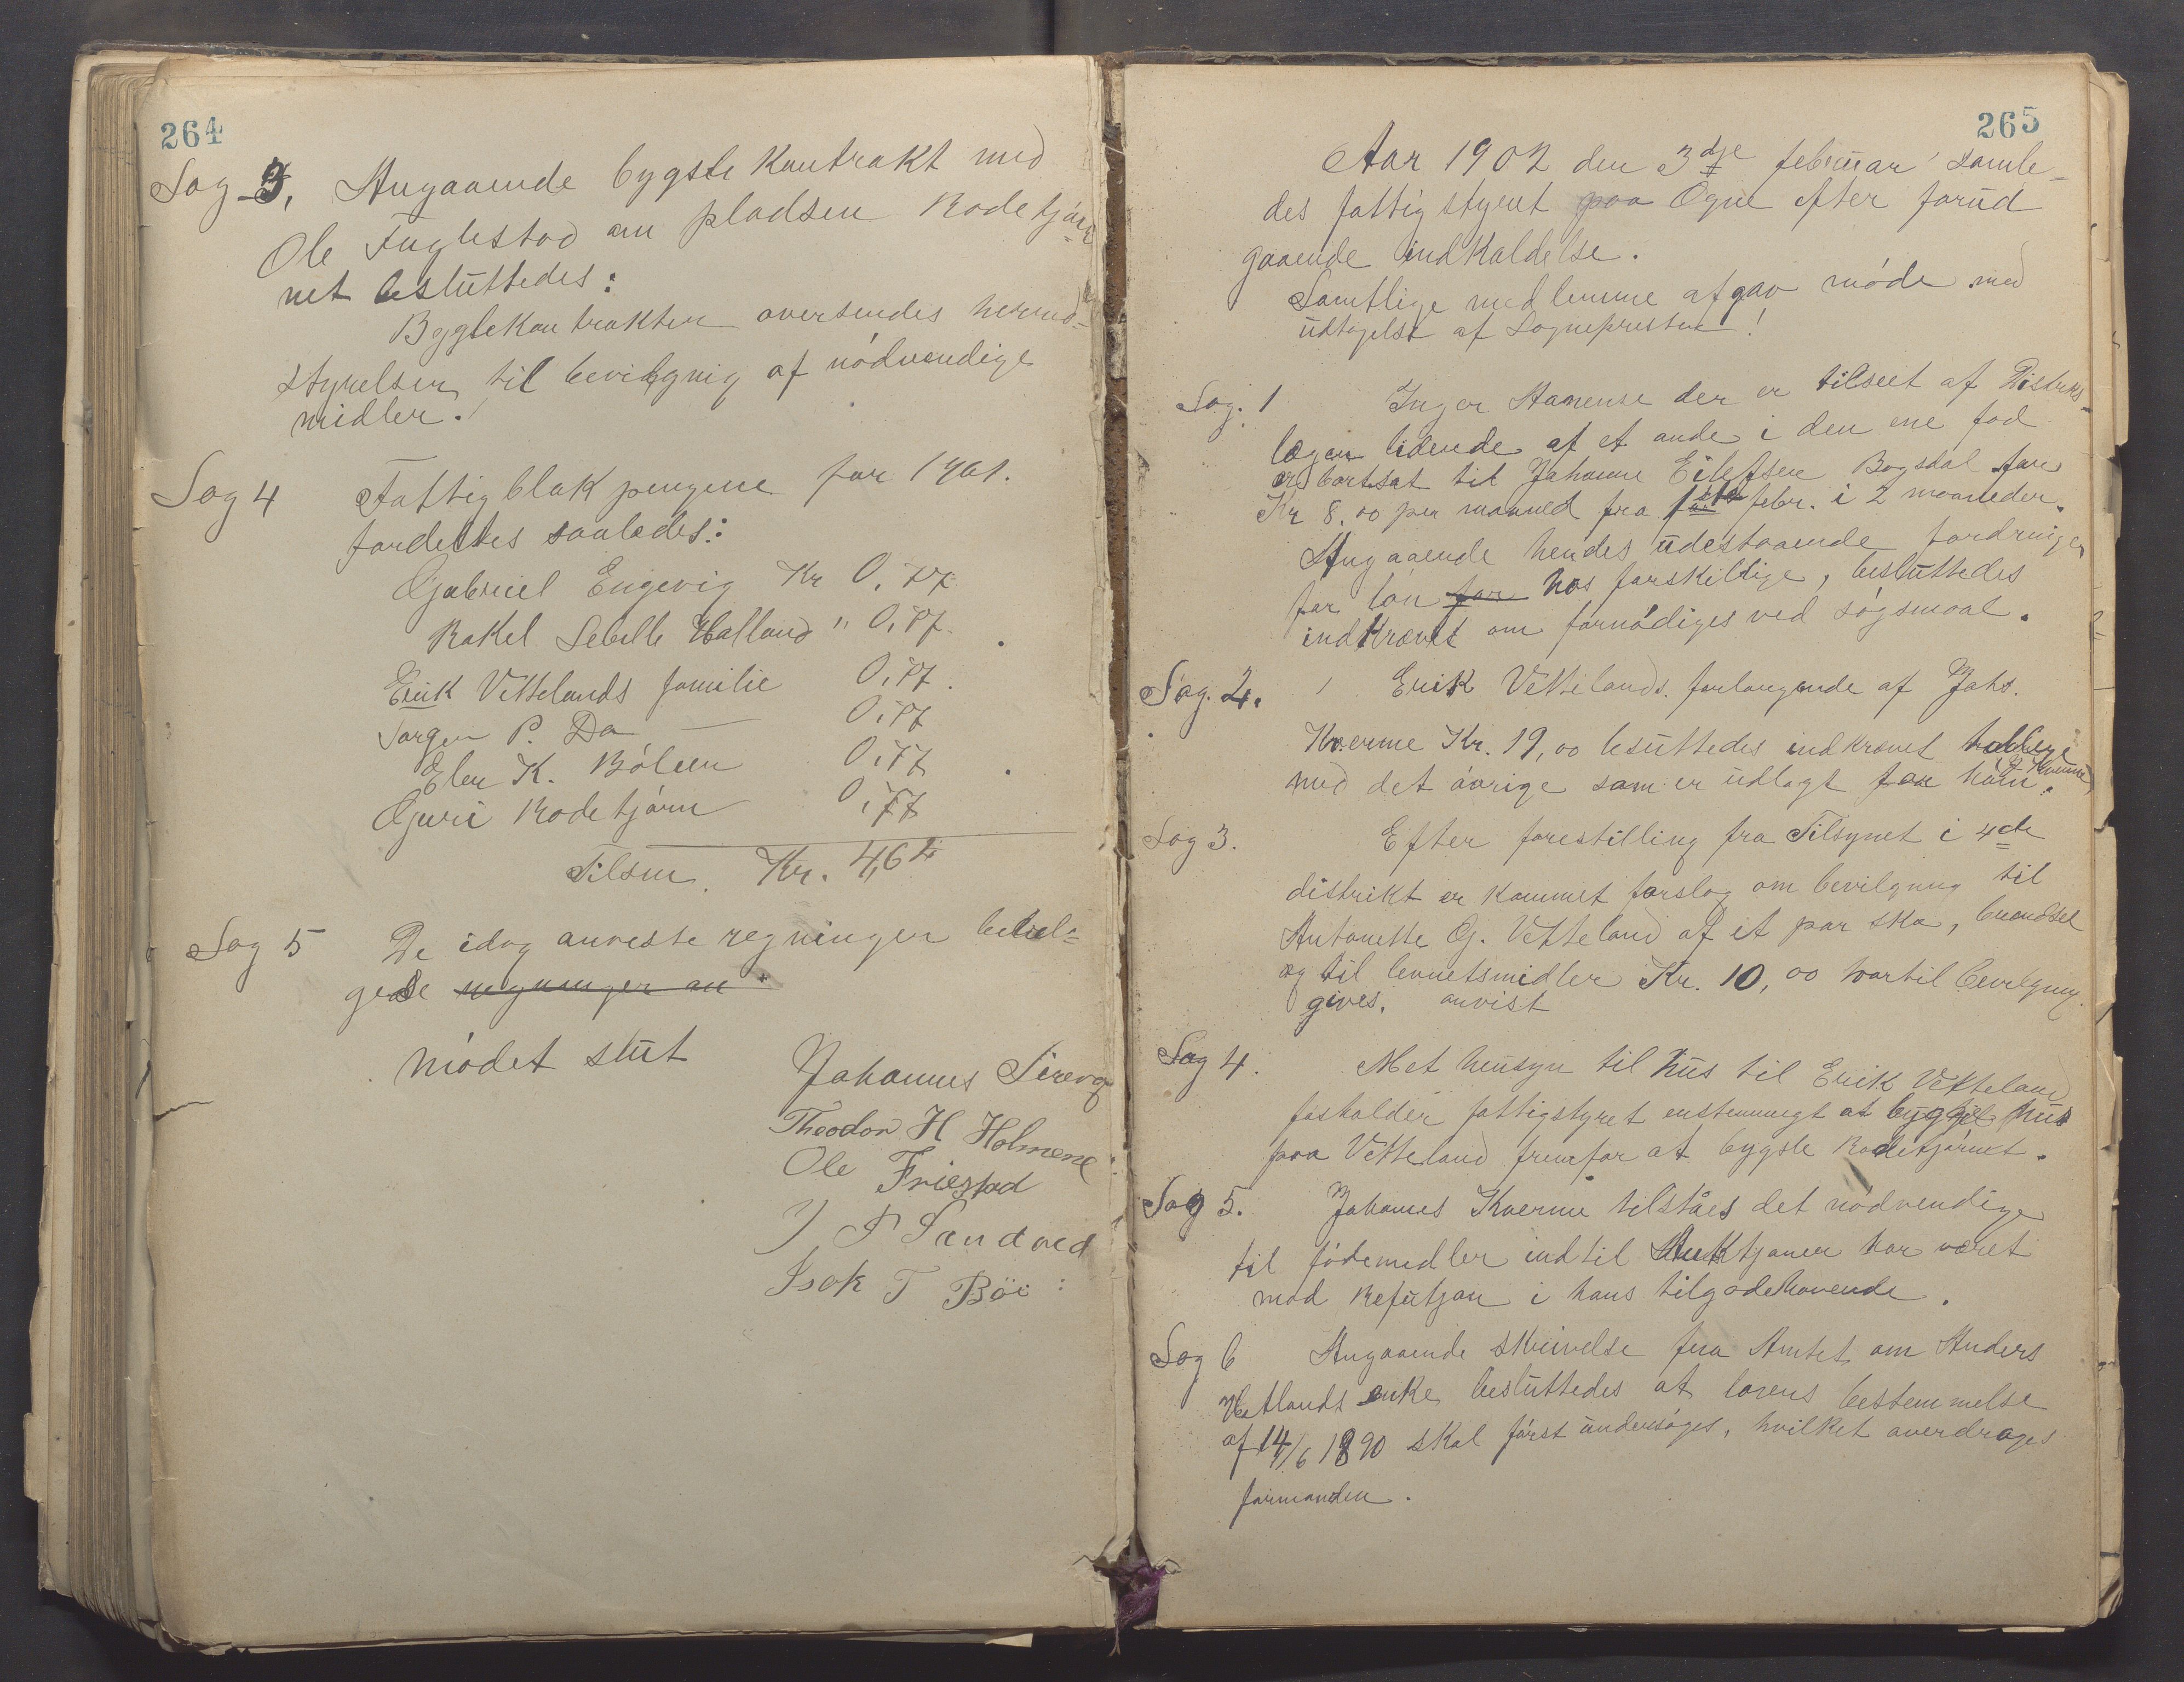 264
Sag 3, Angaaende bygslekontrakt med
Ole Fuglestad om pladsen Rodetjær
net besluttedes:
Byglekontrakten oversendes herred-
styrelsen til bevilgnig af nödvendige
midler.
Sag 4 Fattigblok pengene for 1901.
fordeltes saaledes:
Gabriel Engevig Kr 0,77
Rakel Sebille Hatland " 0,77.
Erik Vettelands familie 0,77.
P. Da 0,77
Elen K. Bólien 0,77
Guri Rodetjörn 0,77
Tilsm. Kr. 4,62
Sag 5 De idag anveste regninger belæl-
gede regninger an
módet slut
Johannes Sirevog
Theodor H Holmene
Ole Friestad
J P Sandved
Isak T Böe
265
Aar 1902 den 3dje februar samle-
des fattigstyret paa Ogne efter forud
gaaende indkaldelse.
Samtlige medlemme afgav móde med
udtagelse af Sognepresten!
Sag. 1 Inger Hanense der er tilseet af Distriks-
lægen lidende af et onde i den ene fod
er bortsat til Johanne Eilefsen Bogsdal for
Kr 8.00 per maaned fra 1ste febr. i 2 maaneder.
Angaaende hendes udestaaende fordringer
for lón for hos forskillige, besluttedes
indkrævet om fornódiges ved sógsmaal.
Sag. 2. Erik Vettelands. forlangende af Johs.
Kværme Kr. 19,00 besuttedes indkrævet
med det óvrige som er udlagt for ham.
Sag 3. Efter forestilling fra Tilsynet i 4de
distrikt er kommet forslag om bevilgning til
Antonette G. Vetteland af et par sko, brændsel
og til levnetsmidler Kr. 10,00 hvortil bevilgning
gives. anvist
Sag 4. Met hensyn til hus til Erik Vetteland
fasholder fattigstyret enstemmigt at bygge hus
paa Vetteland fremfor at bygsle Rodetjörnet.
Sag 5. Johannes Kværme tilståes det nódvendige
til fódemidler indtil Auktjonen har været
mod Refutjon i hans tilgodehavende.
Sag 6 Angaaende skrivelse fra Amtet om Anders
Vetlands enke besluttedes at lovens bestemmelse
af 14/6 1890 skal fórst undersóges, hvilket overdrages
formanden.